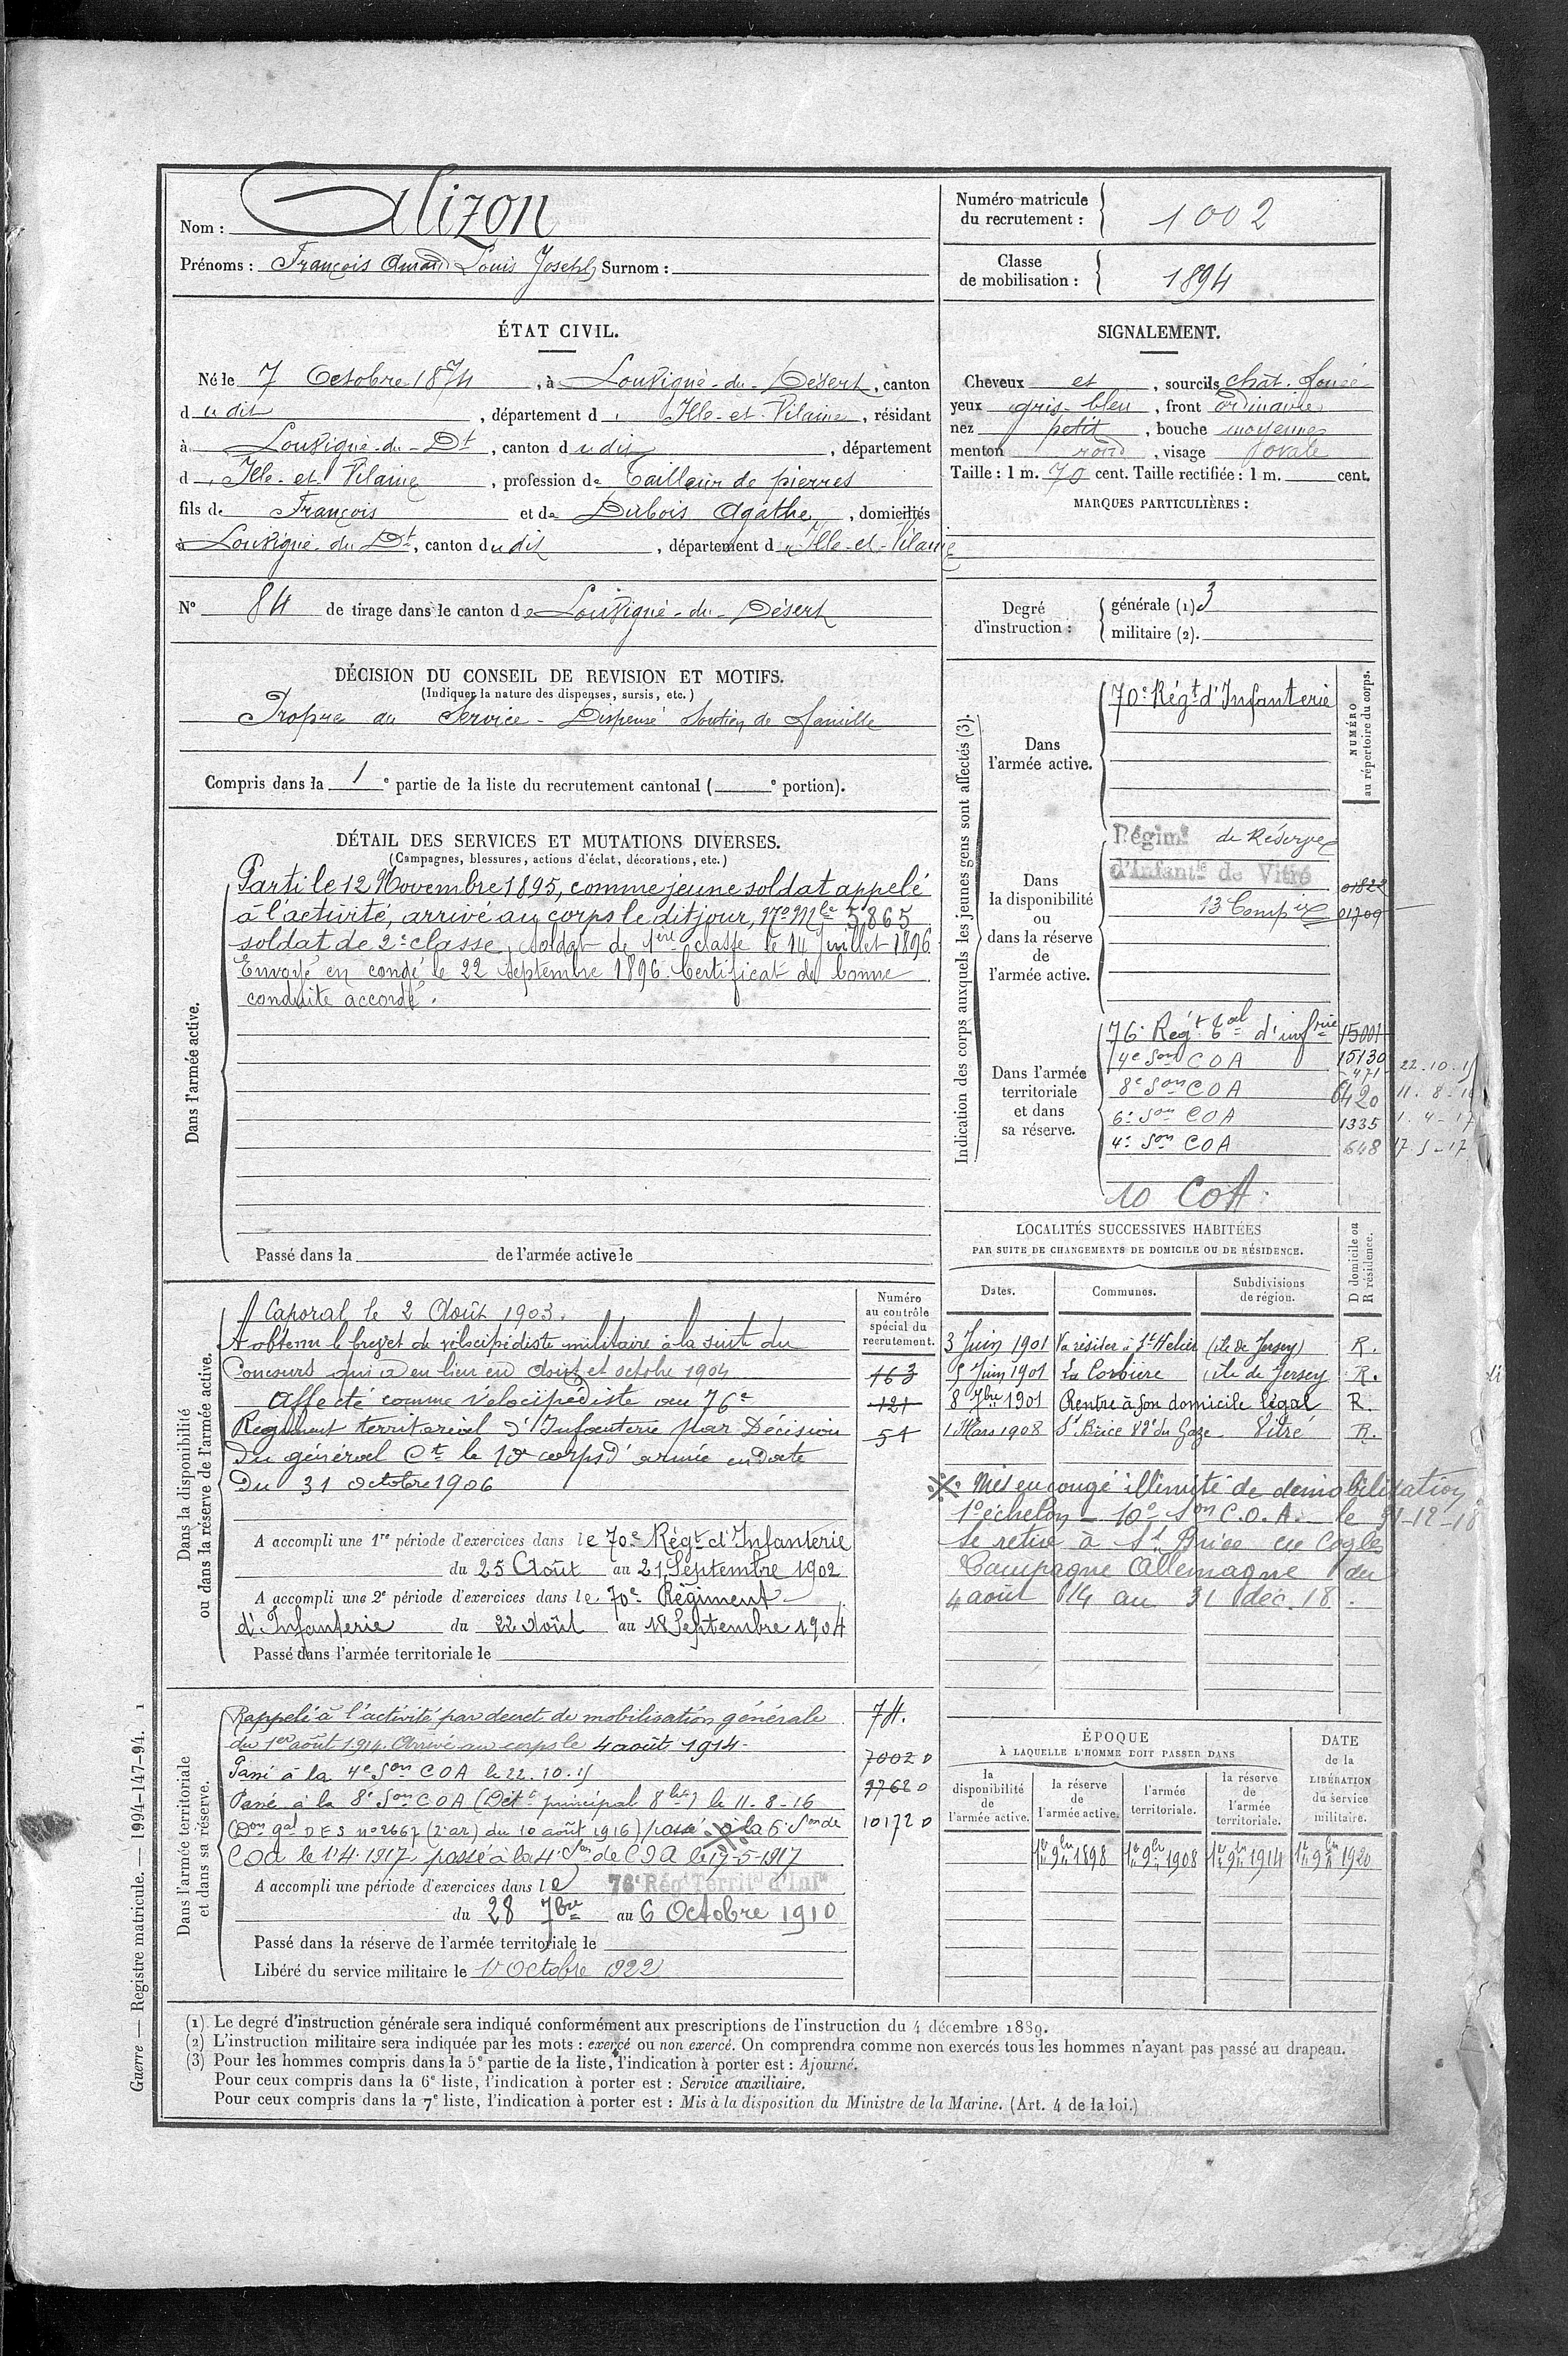 Nom : Alizon
Prénoms : François Amand Louis Joseph Surnom :
Numéro matricule du recrutement : 1002
Classe de mobilisation : 1894
ÉTAT CIVIL.
Né le 7 Octobre 1874, à Louvigné-du-Désert, canton
dudit, département d'Ille-et-Vilaine, résidant
à Louvigné-du-Dt, canton dudit, département
d'Ille-et-Vilaine, profession de Tailleur de pierres
fils de François et de Dubois Agathe, domiciliés
à Louvigné-du-Dt, canton dudit, département d'Ille-et-Vilaine
N° 84 de tirage dans le canton de Louvigné-du-Désert
SIGNALEMENT.
Cheveux et, sourcils chât. foncé
yeux gris-bleu, front ordinaire
nez petit, bouche moyenne
menton rond, visage ovale
Taille : 1 m. 70 cent. Taille rectifiée : 1 m. cent.
MARQUES PARTICULIÈRES :
Degré d'instruction :
générale (1). 3
militaire (2).
DÉCISION DU CONSEIL DE REVISION ET MOTIFS.
(Indiquer la nature des dispenses, sursis, etc.)
Propre au Service - Dispensé Soutien de famille
Compris dans la 1e partie de la liste du recrutement cantonal ( e portion).
DÉTAIL DES SERVICES ET MUTATIONS DIVERSES.
(Campagnes, blessures, actions d'éclat, décorations, etc.)
Dans l'armée active.
Parti le 12 Novembre 1895, comme jeune soldat appelé
à l'activité, arrivé au corps le dit jour, N° Mle 5865
soldat de 2e classe, soldat de 1ère classe le 14 Juillet 1896
Envoyé en congé le 22 Septembre 1896. Certificat de bonne
conduite accordé.
Passé dans la de l'armée active le
Indication des corps auxquels les jeunes gens sont affectés (3).
NUMÉRO au répertoire du corps.
Dans l'armée active.
70e Régt d'Infanterie
Dans la disponibilité ou dans la réserve de l'armée active.
Régimt de Réserve
d'Infantie de Vitré 01822
13 Compie 01709
Dans l'armée territoriale et dans sa réserve.
76e Régt tal d'infrie 15001
4e Son COA 15130 471 22.10.15
8e Son COA 6420 11.8.16
6e Son COA 1335 1-4-17
4e Son COA 648 17-5-17
10 COA.
LOCALITÉS SUCCESSIVES HABITÉES
PAR SUITE DE CHANGEMENTS DE DOMICILE OU DE RÉSIDENCE.
D domicile ou R résidence.
Dates. Communes. Subdivisions de région.
3 Juin 1901 Va résider à St-Hélier (île de Jersey) R.
5 Juin 1901 La Corbière île de Jersey R.
8 7bre 1901 Rentre à son domicile légal R.
1 Mars 1908 St Brice Vitré R.
※ Mis en congé illimité de démobilisation
1e échelon - 10e Son C.O.A. le 31-12-18
se retire à St Brice en Cogles
Campagne Allemagne du
4 août 14 au 31 déc. 18.
Dans la disponibilité ou dans la réserve de l'armée active.
Numéro au contrôle spécial du recrutement.
Caporal le 2 Août 1903.
A obtenu le brevet de vélocipédiste militaire à la suite du
Concours qui a eu lieu en Août et octobre 1904 163
Affecté comme vélocipédiste au 76e 121
Régiment territorial d'Infanterie par Décision 51
du général Ct le 10e corps d'armée en date
Du 31 octobre 1906
A accompli une 1re période d'exercices dans le 70e Régt d'Infanterie
du 25 Août au 21 Septembre 1902
A accompli une 2e période d'exercices dans le 70e Régiment
d'Infanterie du 22 Août au 18 Septembre 1904
Passé dans l'armée territoriale le
Dans l'armée territoriale et dans sa réserve.
Rappelé à l'activité par décret de mobilisation générale 74.
du 1er août 1914. Arrivé au corps le 4 août 1914.
Passé à la 4e Son COA le 22.10.15
Passé à la 8e Son COA (Dét principal 8 ) le 11-8-16
Don gal DES n° 2667 (2e ar) du 10 août 1916) passé à la 6e Son de
COA le 1.4.1917 passé à la 4e Son de COA le 17-5-1917
7002 0
9762 0
10172 0
A accompli une période d'exercices dans le 76e Régt Territal d'Infie
du 28 7bre au 6 Octobre 1910
Passé dans la réserve de l'armée territoriale le
Libéré du service militaire le 1er Octobre 1922
ÉPOQUE
À LAQUELLE L'HOMME DOIT PASSER DANS
la disponibilité de l'armée active.
la réserve de l'armée active.
l'armée territoriale.
la réserve de l'armée territoriale.
DATE de la LIBÉRATION du service militaire.
1er 9bre 1898 1er 9bre 1908 1er 9bre 1914 1er 9bre 1920
(1) Le degré d'instruction générale sera indiqué conformément aux prescriptions de l'instruction du 4 décembre 1889.
(2) L'instruction militaire sera indiquée par les mots : exercé ou non exercé. On comprendra comme non exercés tous les hommes n'ayant pas passé au drapeau.
(3) Pour les hommes compris dans la 5e partie de la liste, l'indication à porter est : Ajourné.
Pour ceux compris dans la 6e liste, l'indication à porter est : Service auxiliaire.
Pour ceux compris dans la 7e liste, l'indication à porter est : Mis à la disposition du Ministre de la Marine. (Art. 4 de la loi.)
Guerre — Registre matricule. — 1994-147-94. 1